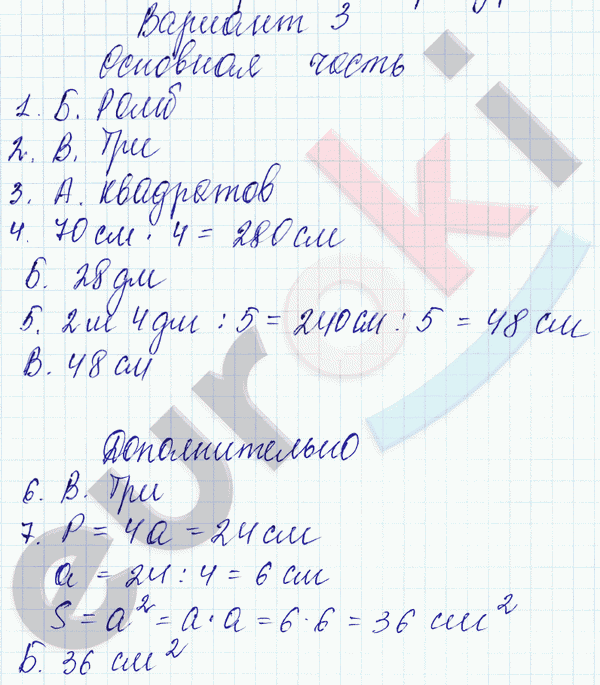 Вариант 3
Основная часть
1. Б. Ромб
2. В. Три
3. А. квадратов
4. 70 см · 4 = 280 см
Б. 28 дм
5. 2 м 4 дм : 5 = 240 см : 5 = 48 см
В. 48 см
Дополнительно
6. В. Три
7. P = 4a = 24 см
a = 24 : 4 = 6 см
S = a² = a · a = 6 · 6 = 36 см²
Б. 36 см²
euroki